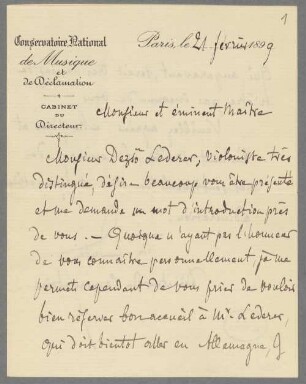 1
Conservatoire National
de Musique
et
de Déclamation
CABINET
DU
Directeur
Paris, le 21 février 1899
Monsieur et éminent Maître
Monsieur Dezsö Lederer, violoniste très
distingué, désire beaucoup vous être présenté
et me demande un mot d'introduction près
de vous. — Quoique n'ayant pas l'honneur
de vous connaître personnellement je me
permets cependant de vous prier de vouloir
bien réserver bon accueil à Mr. Lederer,
qui doit bientôt aller en Allemagne,